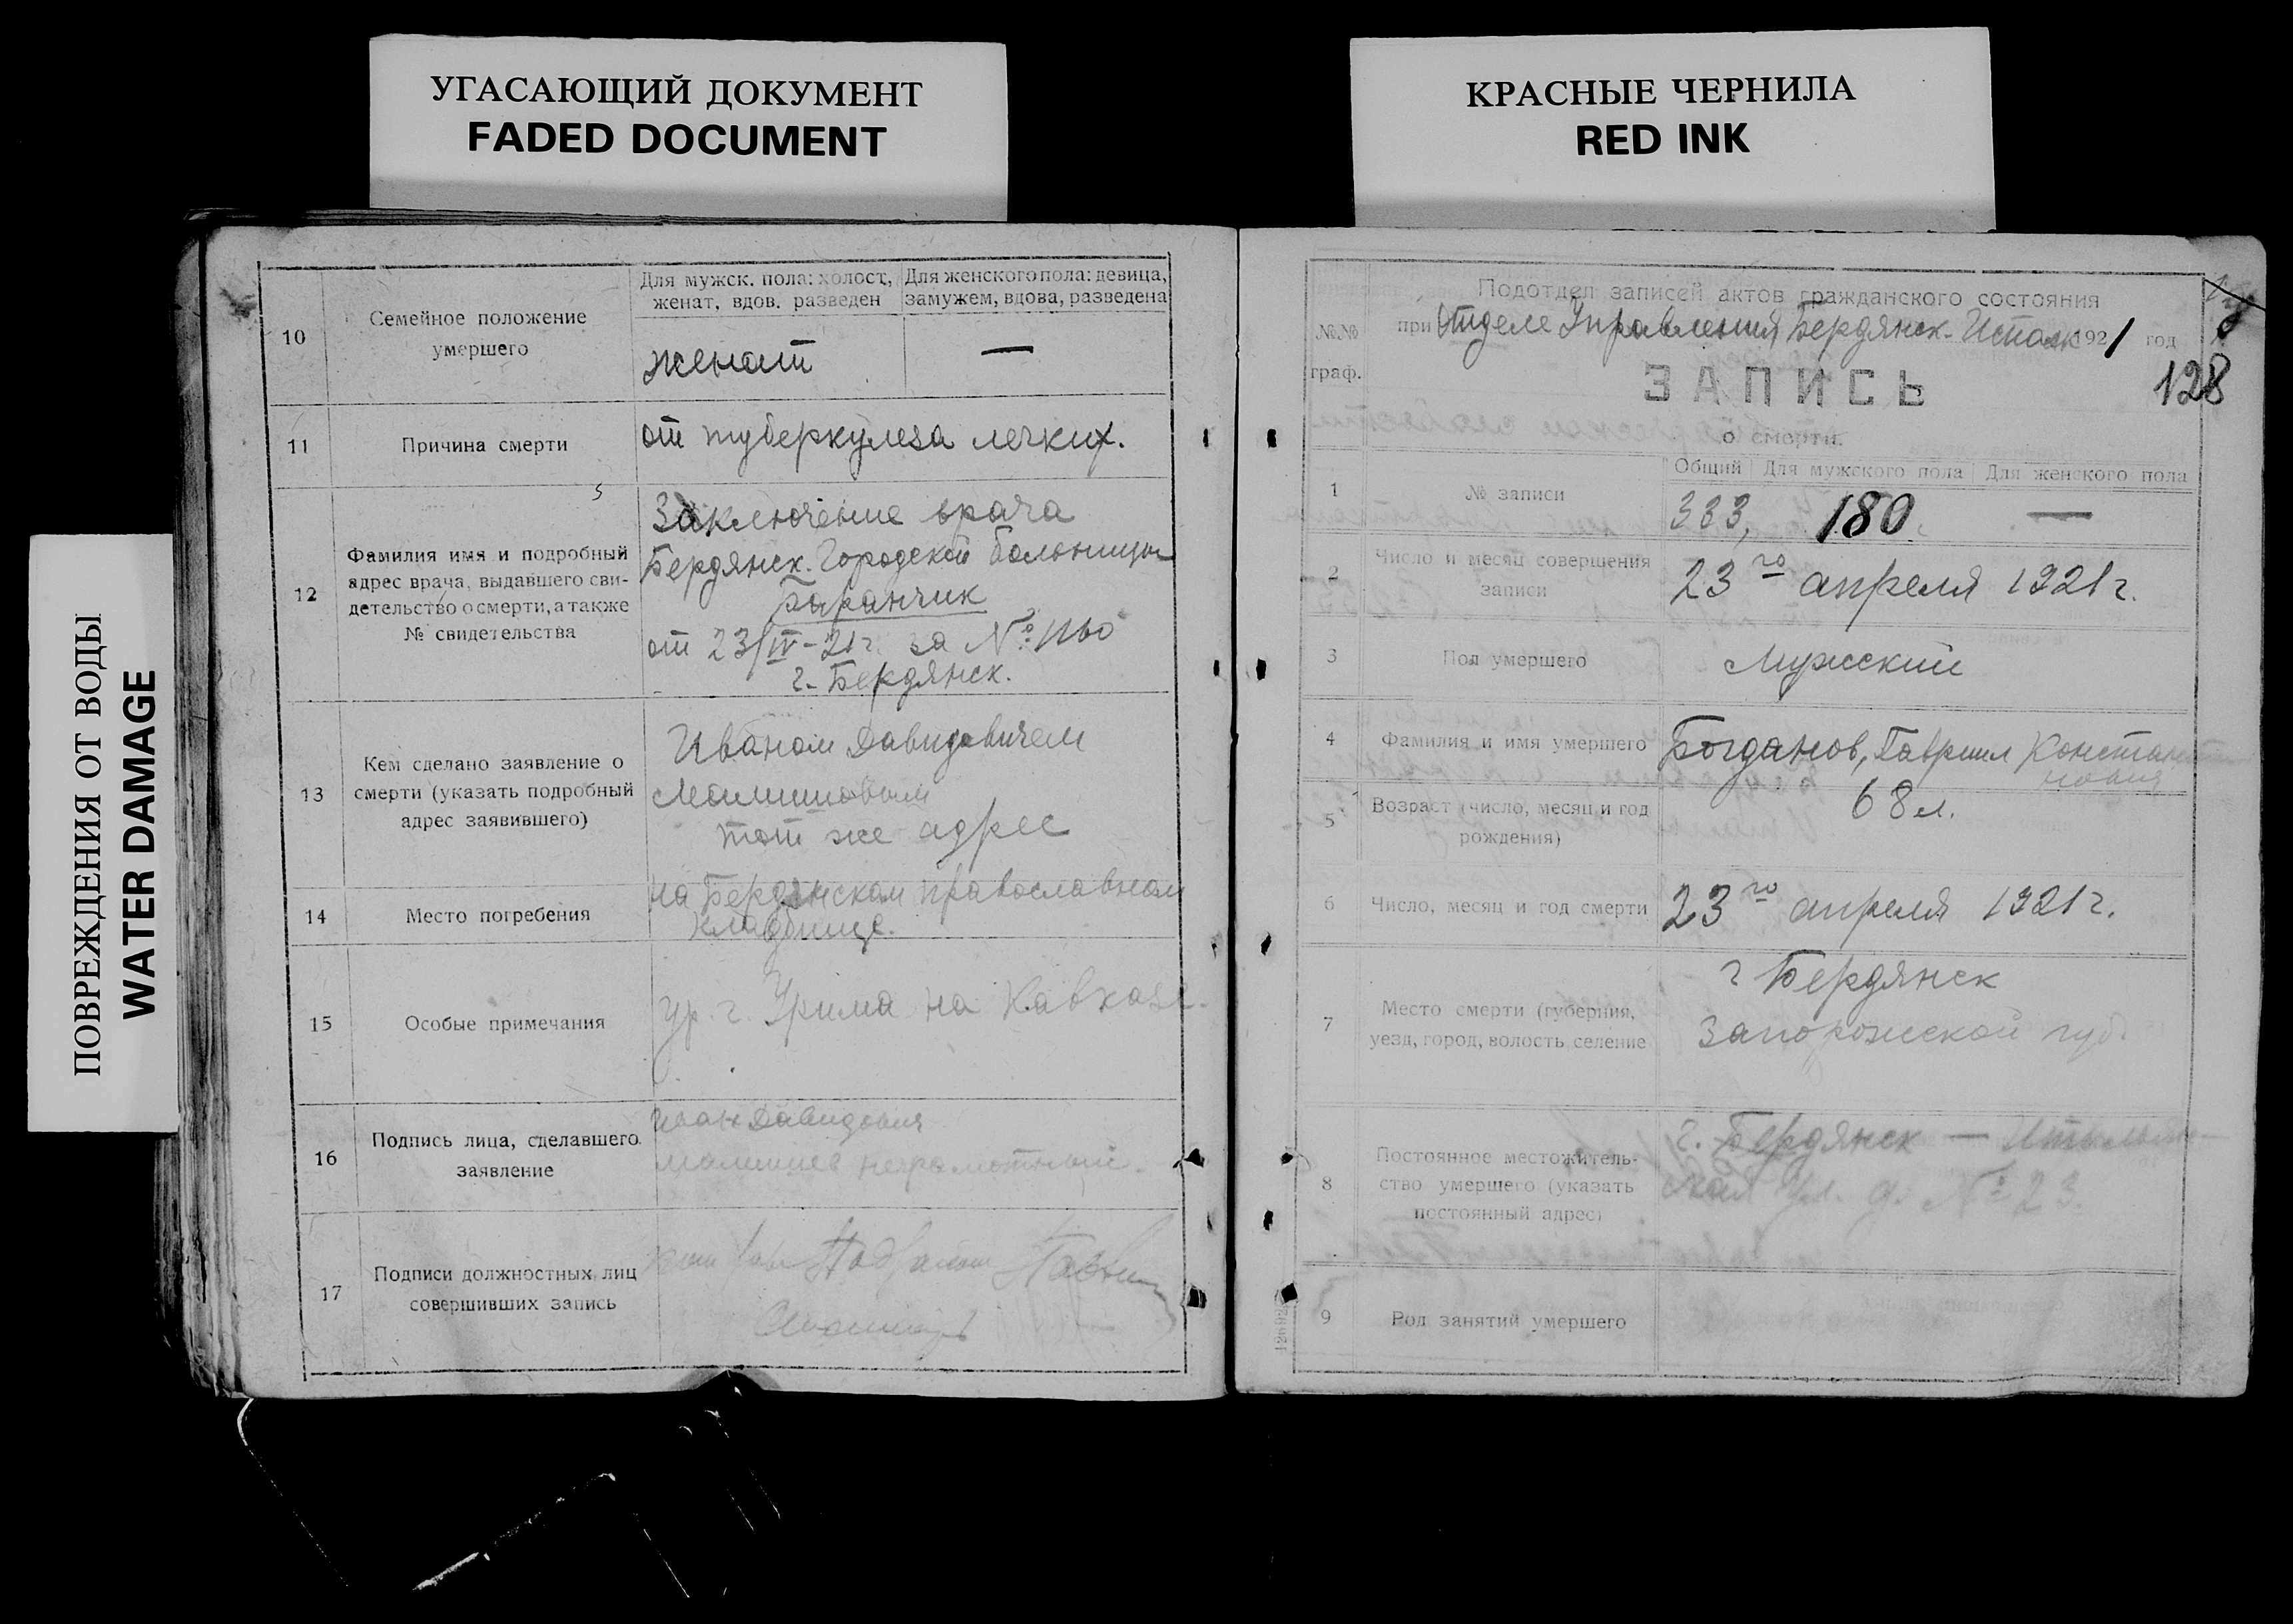 УГАСАЮЩИЙ ДОКУМЕНТ
FADED DOCUMENT
КРАСНЫЕ ЧЕРНИЛА
RED INK
ПОВРЕЖДЕНИЯ ОТ ВОДЫ
WATER DAMAGE
10
Семейное положение
умершего
Для мужск. пола: холост,
женат, вдов. разведен
Для женского пола: девица,
замужем, вдова, разведена
женат
—
11
Причина смерти
от туберкулеза легких.
12
Фамилия имя и подробный
адрес врача, выдавшего сви-
детельство о смерти, а также
№ свидетельства
Заключение врача
Бердянск. Городской больницы
от 23/IV-21 г. за №
г. Бердянск.
13
Кем сделано заявление о
смерти (указать подробный
адрес заявившего)
Иваном Давидовичем
тот же адрес
14
Место погребения
на Бердянском православном
кладбище.
15
Особые примечания
ур. г. на Кавказе.
16
Подпись лица, сделавшего
заявление
Иван Давидович
неграмотный.
17
Подписи должностных лиц
совершивших запись
№№
граф.
Подотдел записей актов гражданского состояния
при Отделе Управления Бердянск. Исполк 1921 год
128
ЗАПИСЬ
о смерти.
1
№ записи
Общий
Для мужского пола
Для женского пола
333,
180.
—
2
Число и месяц совершения
записи
23го апреля 1921 г.
3
Пол умершего
Мужский
4
Фамилия и имя умершего
Богданов, Гавриил Константи
нович
5
Возраст (число, месяц и год
рождения)
68 л.
6
Число, месяц и год смерти
23го апреля 1921 г.
7
Место смерти (губерния,
уезд, город, волость селение
г Бердянск
Запорожской губ.
8
Постоянное местожитель-
ство умершего (указать
постоянный адрес)
г. Бердянск —
ская ул. д. № 23.
9
Род занятий умершего